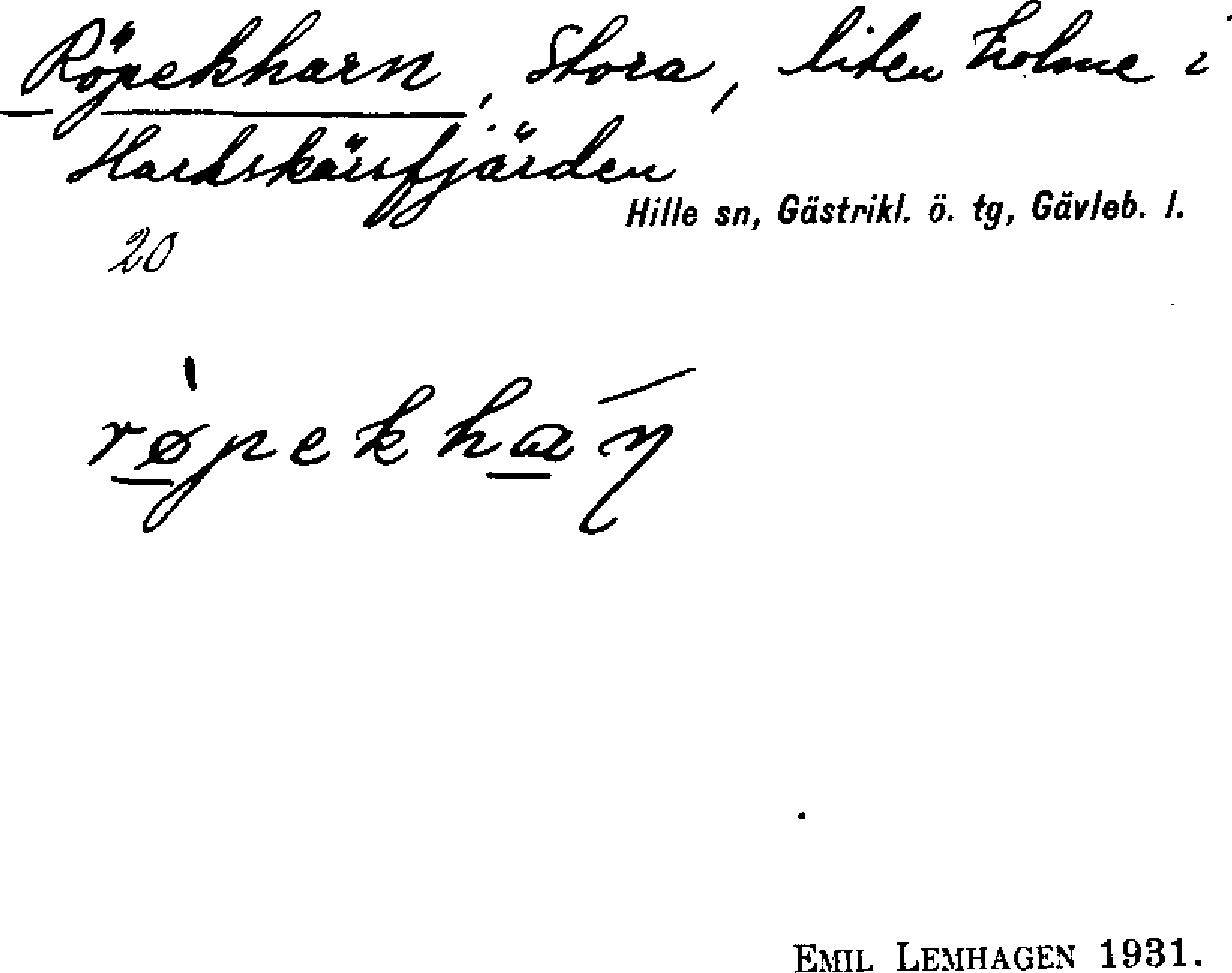 Röpekharn, Stora, liten holme i
Hardskärsfjärden
Hille sn, Gästrikl. ö. tg, Gävleb. l.
20
EMIL LEMHAGEN 1931.